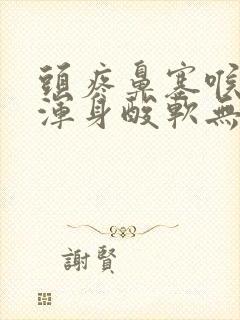 頭疼鼻塞喉
渾身酸軟無
謝賢